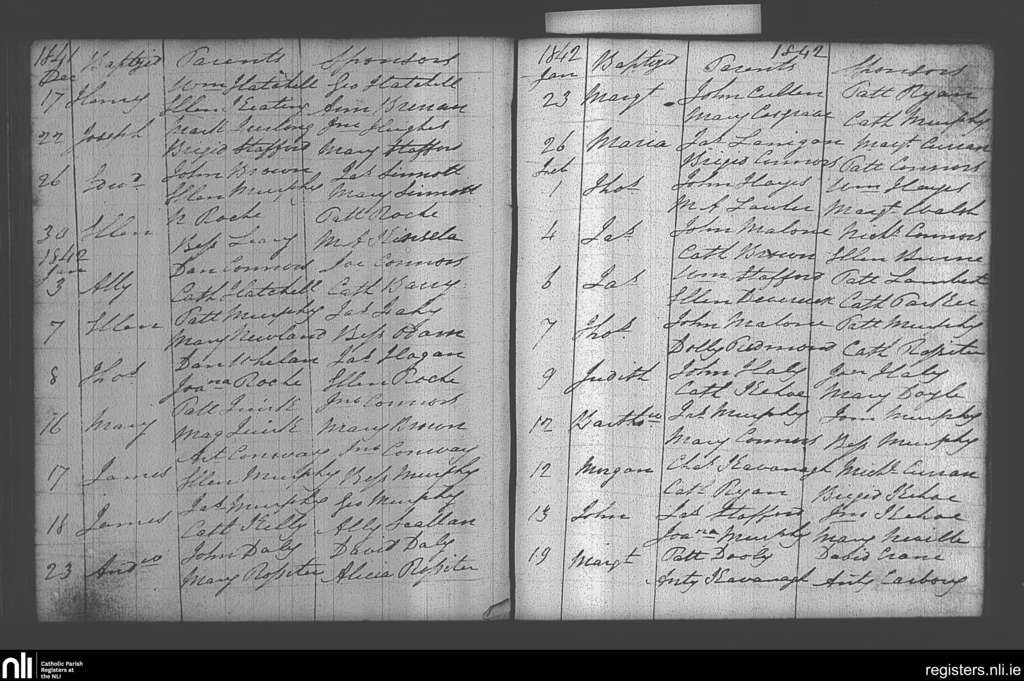 1841 Baptized Parents Sponsors
Dec
17 Henry Wm Hatchell Geo Hatchell
Ellen Keating Ann Brenan
22 Joseph Mark Furlong Jno Hughes
Brigid Stafford Mary Stafford
26 Edwd John Brown Jas Sinnott
Ellen Murphy Mary Sinnott
30 Ellen N Roche Patt Roche
Bess Leary M A Kinsela
1842
Jan
3 Ally Dan Connors Joe Connors
Cath Hatchell Cath Barry
7 Ellen Patt Murphy Jas Leahy
Mary Newland Bess
8 Thos Dan Whelan Jas Hogan
Joana Roche Ellen Roche
16 Mary Patt Quirk Jno Connors
Mag Quirk Mary Brown
17 James Art Conway Jno Conway
Ellen Murphy Bess Murphy
18 James Jas Murphy Geo Murphy
Cath Kelly Ally Scallan
23 Andw John Daly David Daly
Mary Rossiter Alicia Rossiter
1842 Baptized Parents 1842 Sponsors
Jan
23 Margt John Cullen Patt Ryan
Mary Cosgrave Cath Murphy
26 Maria Jas Lanigan Margt Curran
Brigid Connors Patt Connors
Feb
1 Thos John Hayes Wm Hayes
M A Lawler Margt Walsh
4 Jas John Malone Nichs Connors
Cath Brown Ellen
6 Jas Wm Stafford Patt Lambert
Ellen Devereux Cath Parker
7 Thos John Malone Patt Murphy
Dolly Redmond Cath Rossiter
9 Judith John Healy Healy
Cath Kehoe Mary Doyle
12 Bartho Jas Murphy Murphy
Mary Connors Bess Murphy
12 Morgan Chas Kavanagh Michl Curran
Cath Ryan Brigid Kehoe
13 John Jas Stafford Jno Kehoe
Joana Murphy Mary Neville
19 Margt Patt Dooly David Crane
Anty Kavanagh Anty Carbery
nli Catholic Parish
Registers at
the NLI
registers.nli.ie